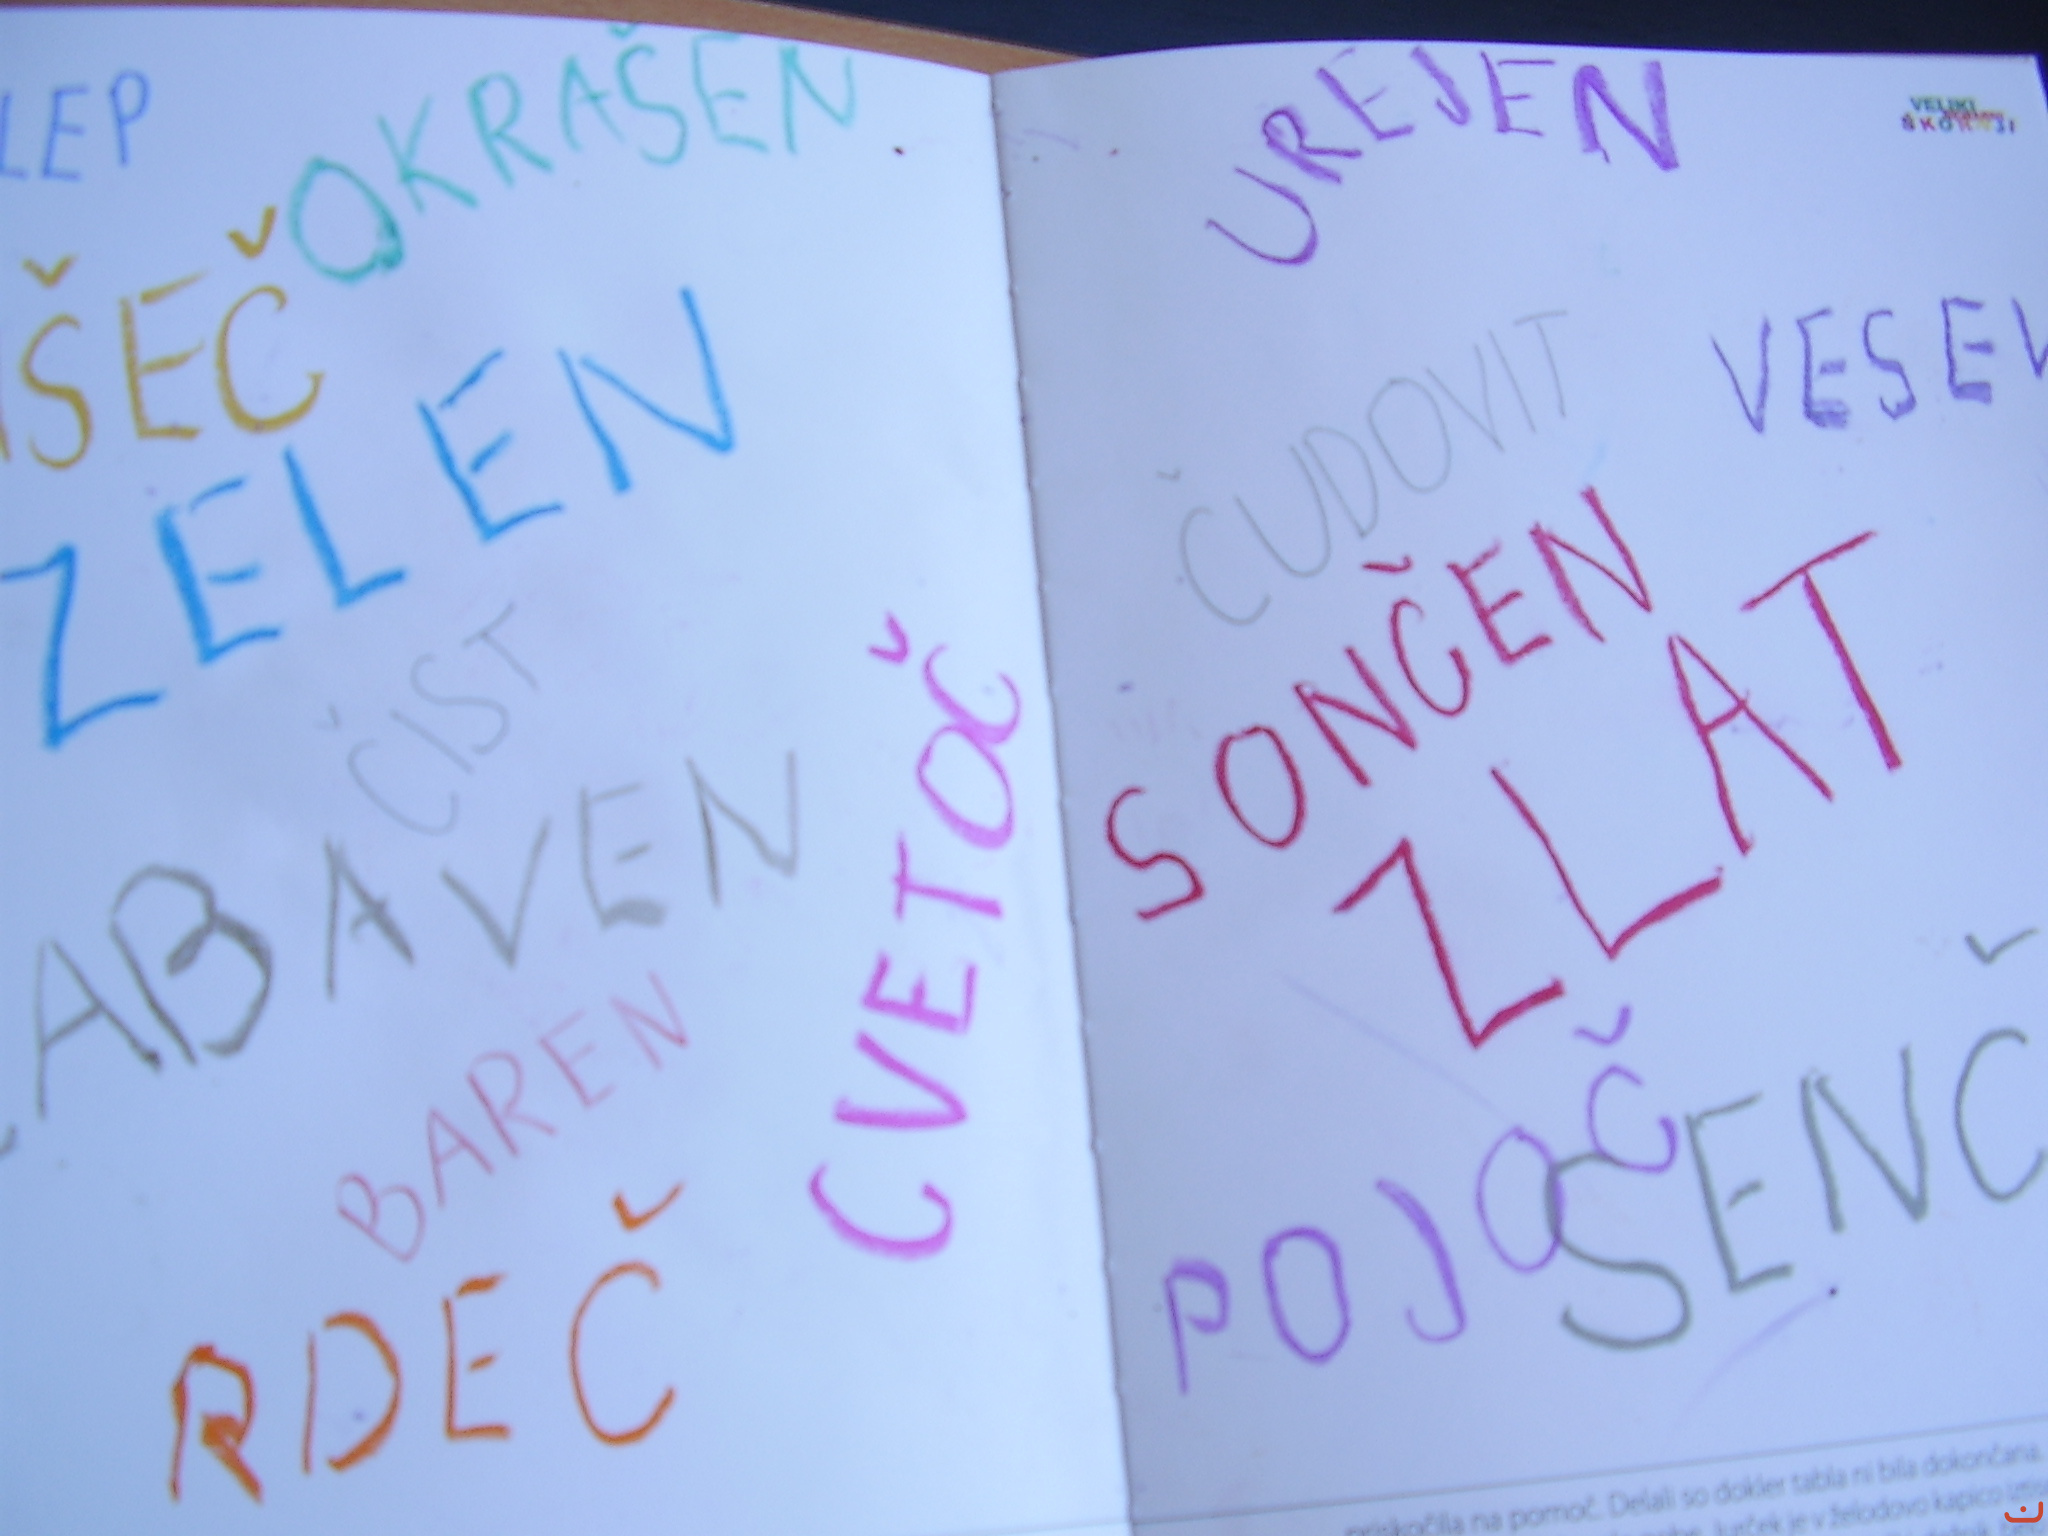 LEP
OKRAŠEN
IŠEČ
ZELEN
ČIST
ABAVEN
BAREN
RDEČ
CVETOČ
UREJEN
VELIKI
ŠKORNJI
VESEL
ČUDOVIT
SONČEN
ZLAT
POJOČ
SENČ
priskočila na pomoč. Delali so dokler tabla ni bila dokončana.
je v želodovo kapico